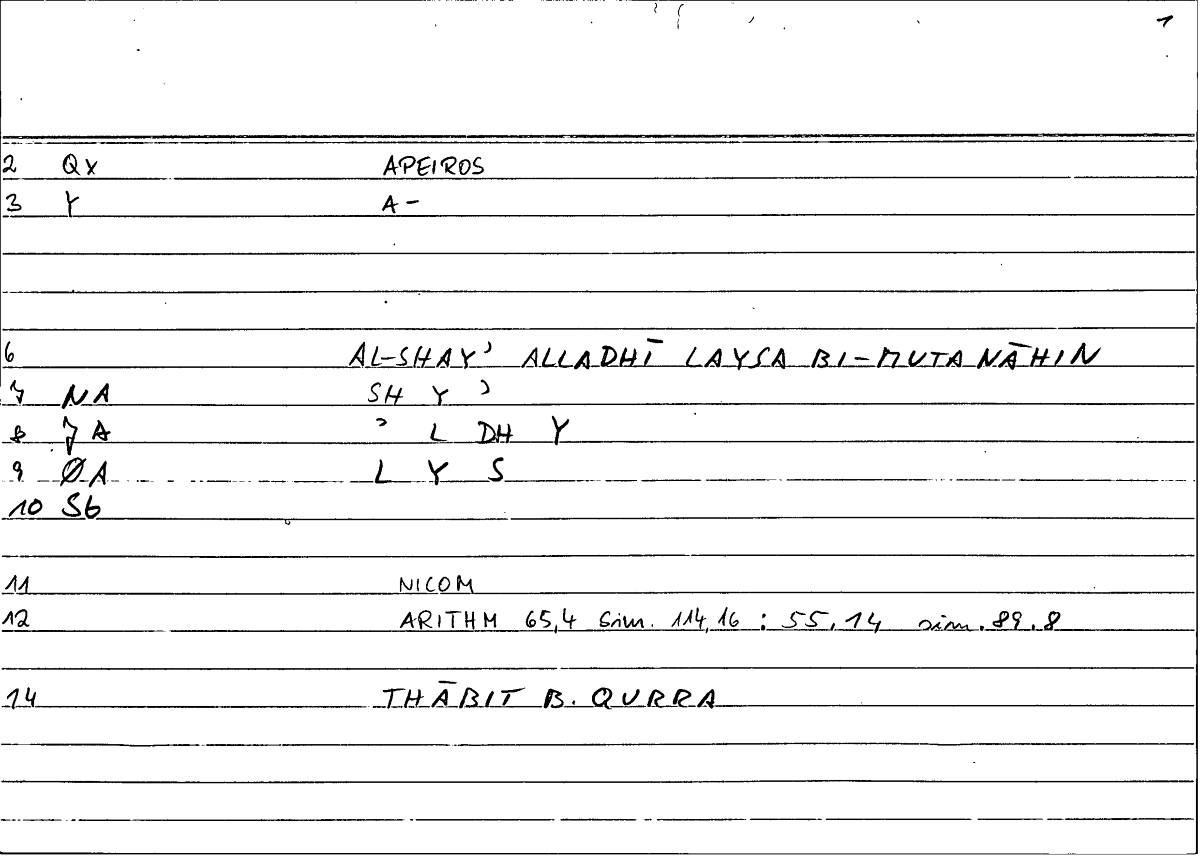 1
2 QX APEIROS
3 Y A-
6 AL-SHAY' ALLADHĪ LAYSA BI-MUTANĀHIN
7 NA SH Y '
8 JA ' L DH Y
9 ØA L Y S
10 Sb
11 NICOM
12 ARITHM 65,4 Sim. 114,16 : 55,14 sim. 89.8
14 THĀBIT B. QURRA